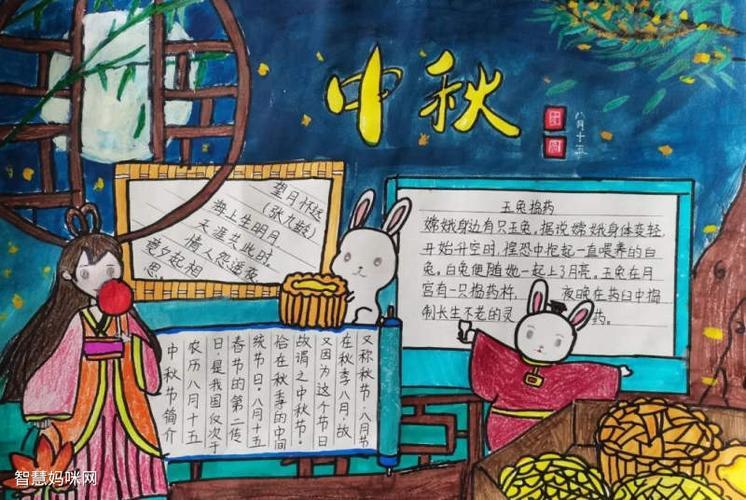 中秋
团圆
八月十五
望月怀远
(张九龄)
海上生明月
天涯共此时.
情人怨遥夜.
竟夕起相
思
玉兔捣药
嫦娥身边有只玉兔。据说嫦娥身体变轻
开始升空时,惶恐中抱起一直喂养的白
兔。白兔便随她一起上了月亮。玉兔在月
宫有一只捣药杵, 夜晚在药臼中捣
制长生不老的灵 药。
中秋节简介
农历八月十五
日,是我国仅次于
春节的第二传
统节日。八月十五
恰在秋季的中间
故谓之中秋节。
又因为这个节日
在秋季八月,故
又称秋节·八月节
智慧妈咪网